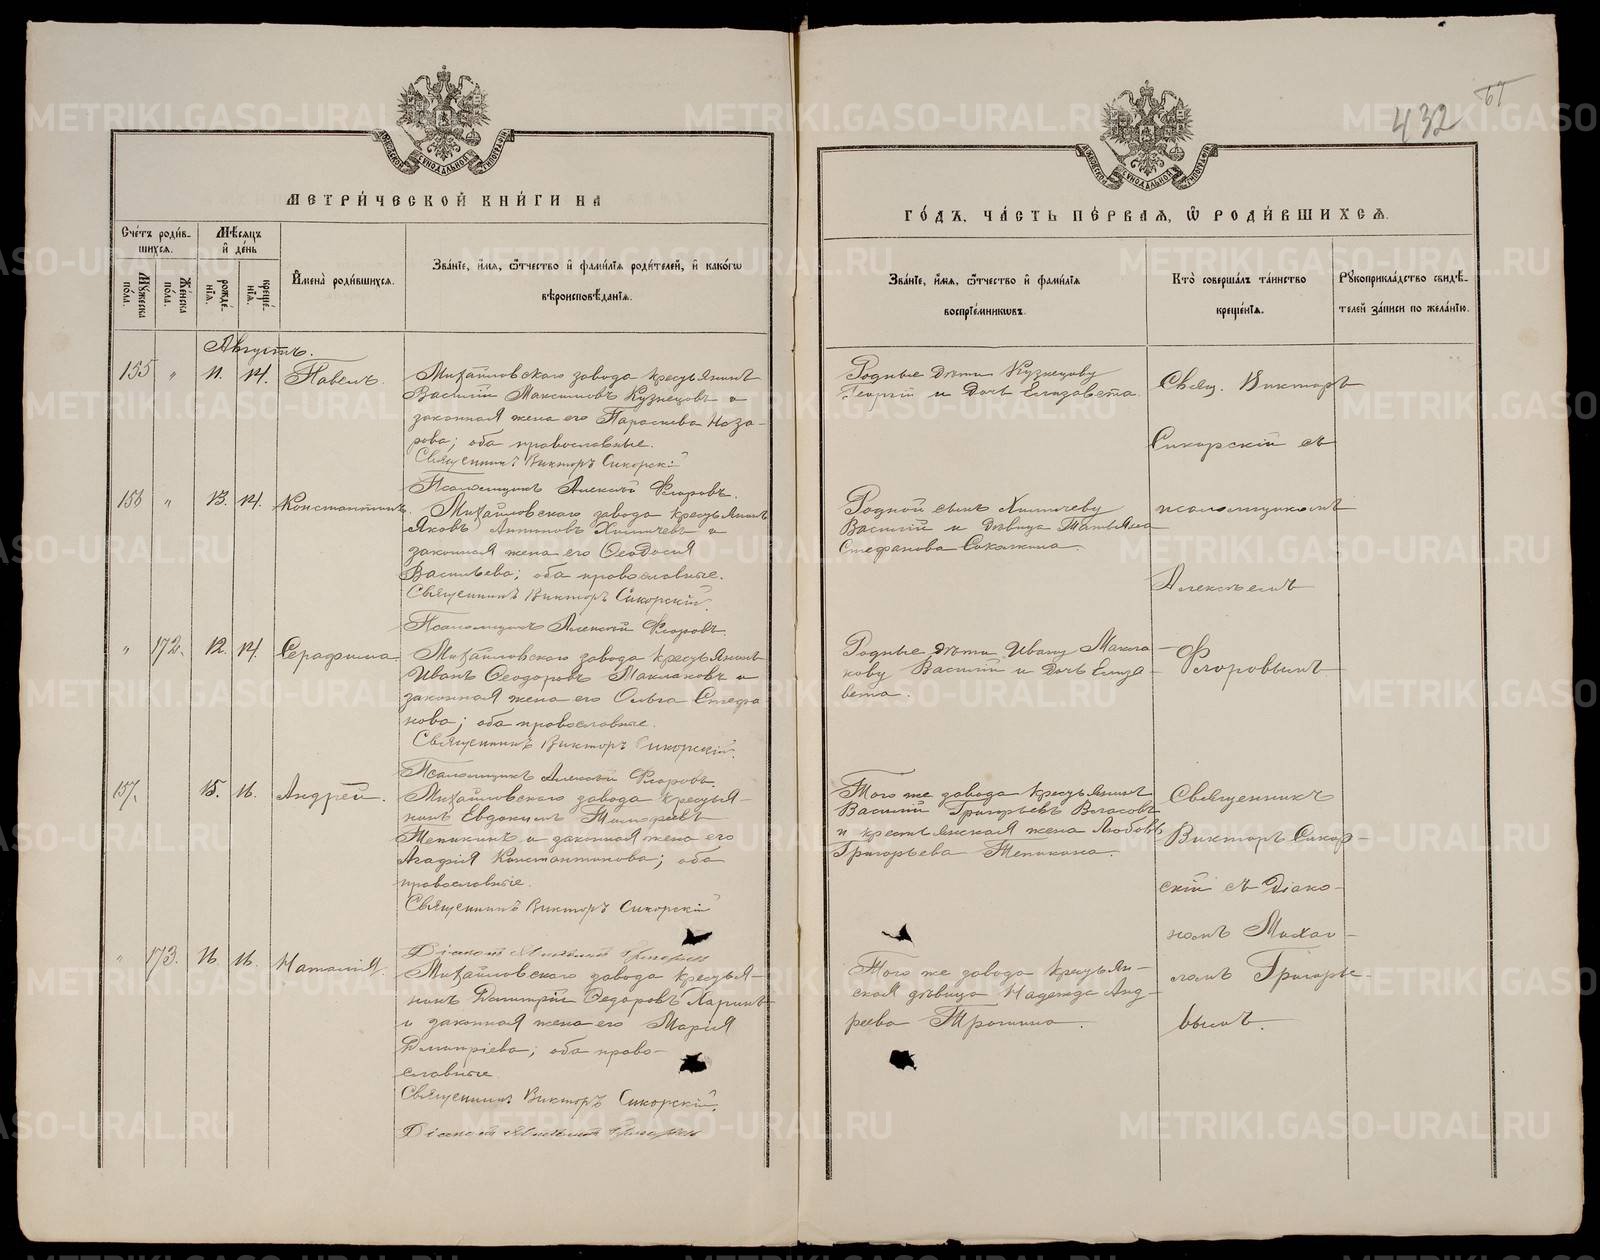 432
МЕТРИ́ЧЕСКОЙ КНИ́ГИ НА
ГО́ДЪ, ЧА́СТЬ ПЕ́РВАЯ, Ѡ РОДИ́ВШИХСЯ.
Сче́тъ роди́в-
шихся.
Му́жеска
по́ла.
Же́нска
по́ла.
Мѣ́сяцъ
и́ де́нь
рожде́-
нїя.
креще́-
нїя.
И́мена̀ роди́вшихся.
Зва́нїе, и́мя, ѻ́тчество и́ фами́лїя роди́телей, и́ како́гѡ
вѣроисповѣ́данїя.
Зва́нїе, и́мя, ѻ́тчество и́ фами́лїя
воспрїе́мникѡвъ.
Кто̀ соверша́лъ та́инство
креще́нїя.
Рꙋкоприкла́дство свидѣ́-
телей за́писи по жела́нїю.
Августъ.
155 " 11. 14. Павелъ.
Михайловскаго завода крестьянинъ
Василій Максимовъ Кузнецовъ и
законная жена его Параскева Наза-
рова; оба православные.
Священникъ Викторъ Сикорскій
Псаломщикъ Алексій Флоровъ.
Родные дѣти Кузнецову
Георгій и дочь Елизавета.
Свящ. Викторъ
Сикорскій съ
псаломщикомъ
Алексѣемъ
Флоровымъ
156 " 13. 14. Константинъ.
Михайловскаго завода крестьянинъ
Яковъ Антиповъ Химичевъ и
законная жена его Ѳеодосія
Васильева; оба православные.
Священникъ Викторъ Сикорскій.
Псаломщикъ Алексій Флоровъ.
Родной сынъ Химичеву
Василій и дѣвица Татьяна
Стефанова Соколкина.
" 172. 12. 14. Серафима.
Михайловскаго завода крестьянинъ
Иванъ Ѳеодоровъ Маклаковъ и
законная жена его Ольга Стефа
нова; оба православные.
Священникъ Викторъ Сикорскій.
Псаломщикъ Алексій Флоровъ.
Родные дѣти Ивану Макла
кову Василій и дочь Елиза-
вета.
157. 15. 16. Андрей.
Михайловскаго завода крестья-
нинъ Евдокимъ Тимофеевъ
Тепикинъ и законная жена его
Агафія Константинова; оба
православные.
Священникъ Викторъ Сикорскій
Того же завода крестьянинъ
Василій Григорьевъ Власовъ
и крестьянская жена Любовь
Григорьева Тепикина.
Священникъ
Викторъ Сикор-
скій съ діако-
номъ Михаи-
ломъ Григорье-
вымъ.
" 173. 16. 16. Наталія.
Михайловскаго завода крестья-
нинъ Димитрій Ѳедоровъ Харинъ
и законная жена его Марія
Димитріева; оба право-
славные
Священникъ Викторъ Сикорскій.
Того же завода крестьян-
ская дѣвица Надежда Анд-
реева Трошина.
METRIKI.GASO-URAL.RU